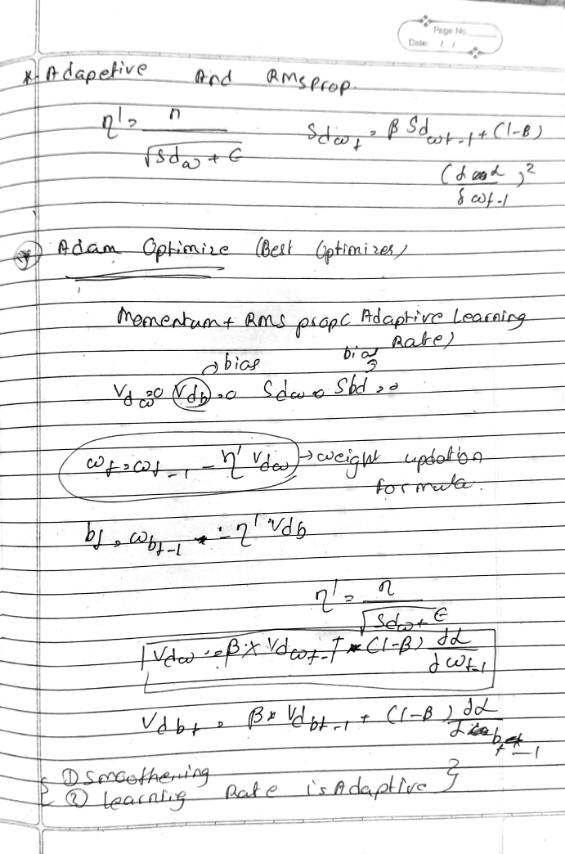 Page No.
Date: / /
* Adapetive And RMsprop.
η' = η / √(Sdω + ϵ)
Sdωt = β Sdωt-1 + (1-β)
(∂L / ∂ωt-1)²
* Adam Optimize (Best Optimizer)
Momentum + RMS prop ( Adaptive Learning
Rate)
bias bias
Vdω = 0 Vdb = 0 Sdω = Sbd = 0
ωt = ωt-1 - η' Vdω → weight updation
formula.
bt = ωbt-1 - η' Vdb
η' = η / √(Sdω + ϵ)
Vdω = β * Vdωt-1 + (1-β) ∂L / ∂ωt-1
Vdbt = β * Vdbt-1 + (1-β) ∂L / ∂bt-1
{ ① Smoothening
② learning Rate is Adaptive }